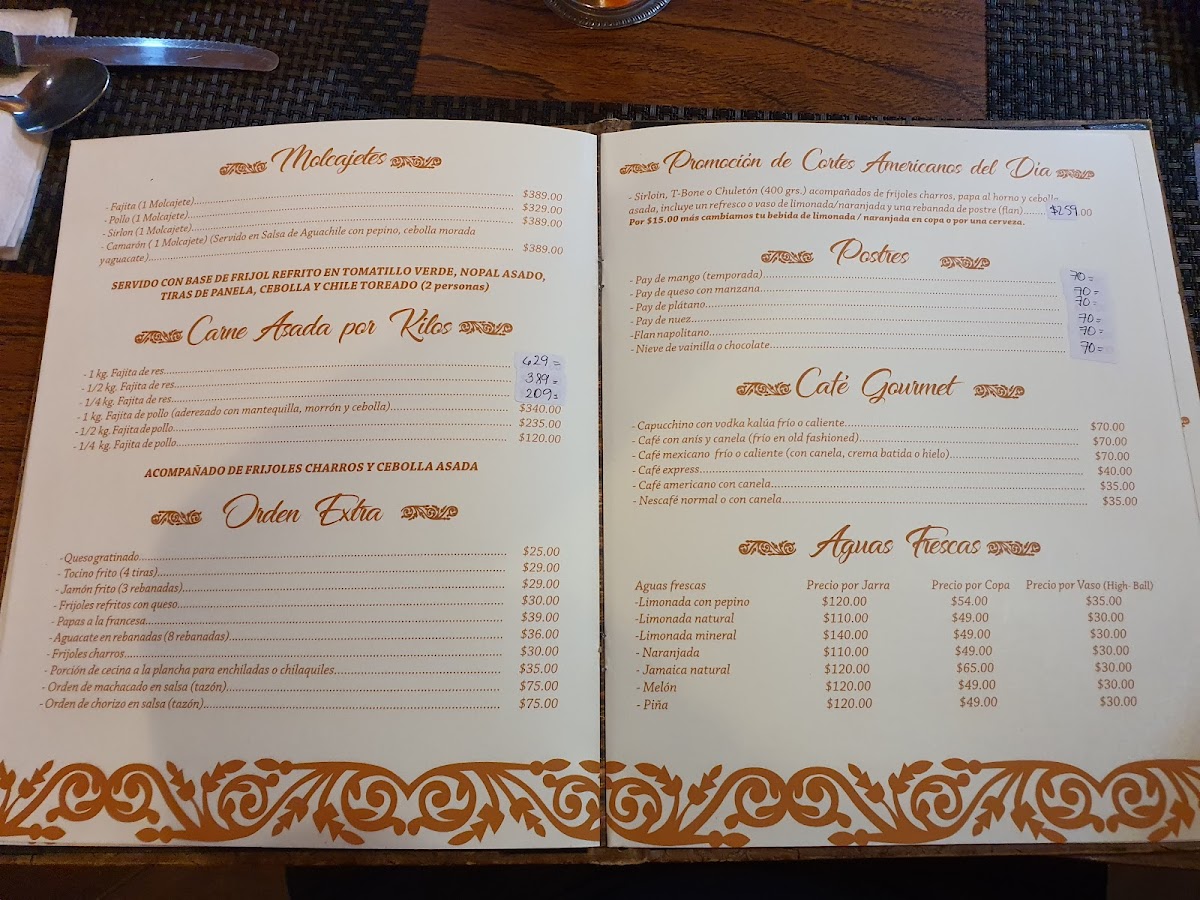 Molcajetes
- Fajita (1 Molcajete)........ $389.00
- Pollo (1 Molcajete)........ $329.00
- Sirlon (1 Molcajete)........ $389.00
- Camarón ( 1 Molcajete) (Servido en Salsa de Aguachile con pepino, cebolla morada
y aguacate)........ $389.00
SERVIDO CON BASE DE FRIJOL REFRITO EN TOMATILLO VERDE, NOPAL ASADO,
TIRAS DE PANELA, CEBOLLA Y CHILE TOREADO (2 personas)
Carne Asada por Kilos
- 1 kg. Fajita de res........ 629=
- 1/2 kg. Fajita de res........ 389=
- 1/4 kg. Fajita de res........ 209=
- 1 kg. Fajita de pollo (aderezado con mantequilla, morrón y cebolla)........ $340.00
- 1/2 kg. Fajita de pollo........ $235.00
- 1/4 kg. Fajita de pollo........ $120.00
ACOMPAÑADO DE FRIJOLES CHARROS Y CEBOLLA ASADA
Orden Extra
- Queso gratinado........ $25.00
- Tocino frito (4 tiras)........ $29.00
- Jamón frito (3 rebanadas)........ $29.00
- Frijoles refritos con queso........ $30.00
- Papas a la francesa........ $39.00
- Aguacate en rebanadas (8 rebanadas)........ $36.00
- Frijoles charros........ $30.00
- Porción de cecina a la plancha para enchiladas o chilaquiles........ $35.00
- Orden de machacado en salsa (tazón)........ $75.00
- Orden de chorizo en salsa (tazón)........ $75.00
Promoción de Cortes Americanos del Dia
- Sirloin, T-Bone o Chuletón (400 grs.) acompañados de frijoles charros, papa al horno y cebolla
asada, incluye un refresco o vaso de limonada/naranjada y una rebanada de postre (flan)........ $259.00
Por $15.00 más cambiamos tu bebida de limonada / naranjada en copa o por una cerveza.
Postres
- Pay de mango (temporada)........ 70=
- Pay de queso con manzana........ 70=
- Pay de plátano........ 70=
- Pay de nuez........ 70=
-Flan napolitano........ 70=
- Nieve de vainilla o chocolate........ 70=
Café Gourmet
- Capucchino con vodka kalúa frío o caliente........ $70.00
- Café con anís y canela (frío en old fashioned)........ $70.00
- Café mexicano frío o caliente (con canela, crema batida o hielo)........ $70.00
- Café express........ $40.00
- Café americano con canela........ $35.00
- Nescafé normal o con canela........ $35.00
Aguas Frescas
Aguas frescas Precio por Jarra Precio por Copa Precio por Vaso (High- Ball)
-Limonada con pepino $120.00 $54.00 $35.00
-Limonada natural $110.00 $49.00 $30.00
-Limonada mineral $140.00 $49.00 $30.00
- Naranjada $110.00 $49.00 $30.00
- Jamaica natural $120.00 $65.00 $30.00
- Melón $120.00 $49.00 $30.00
- Piña $120.00 $49.00 $30.00